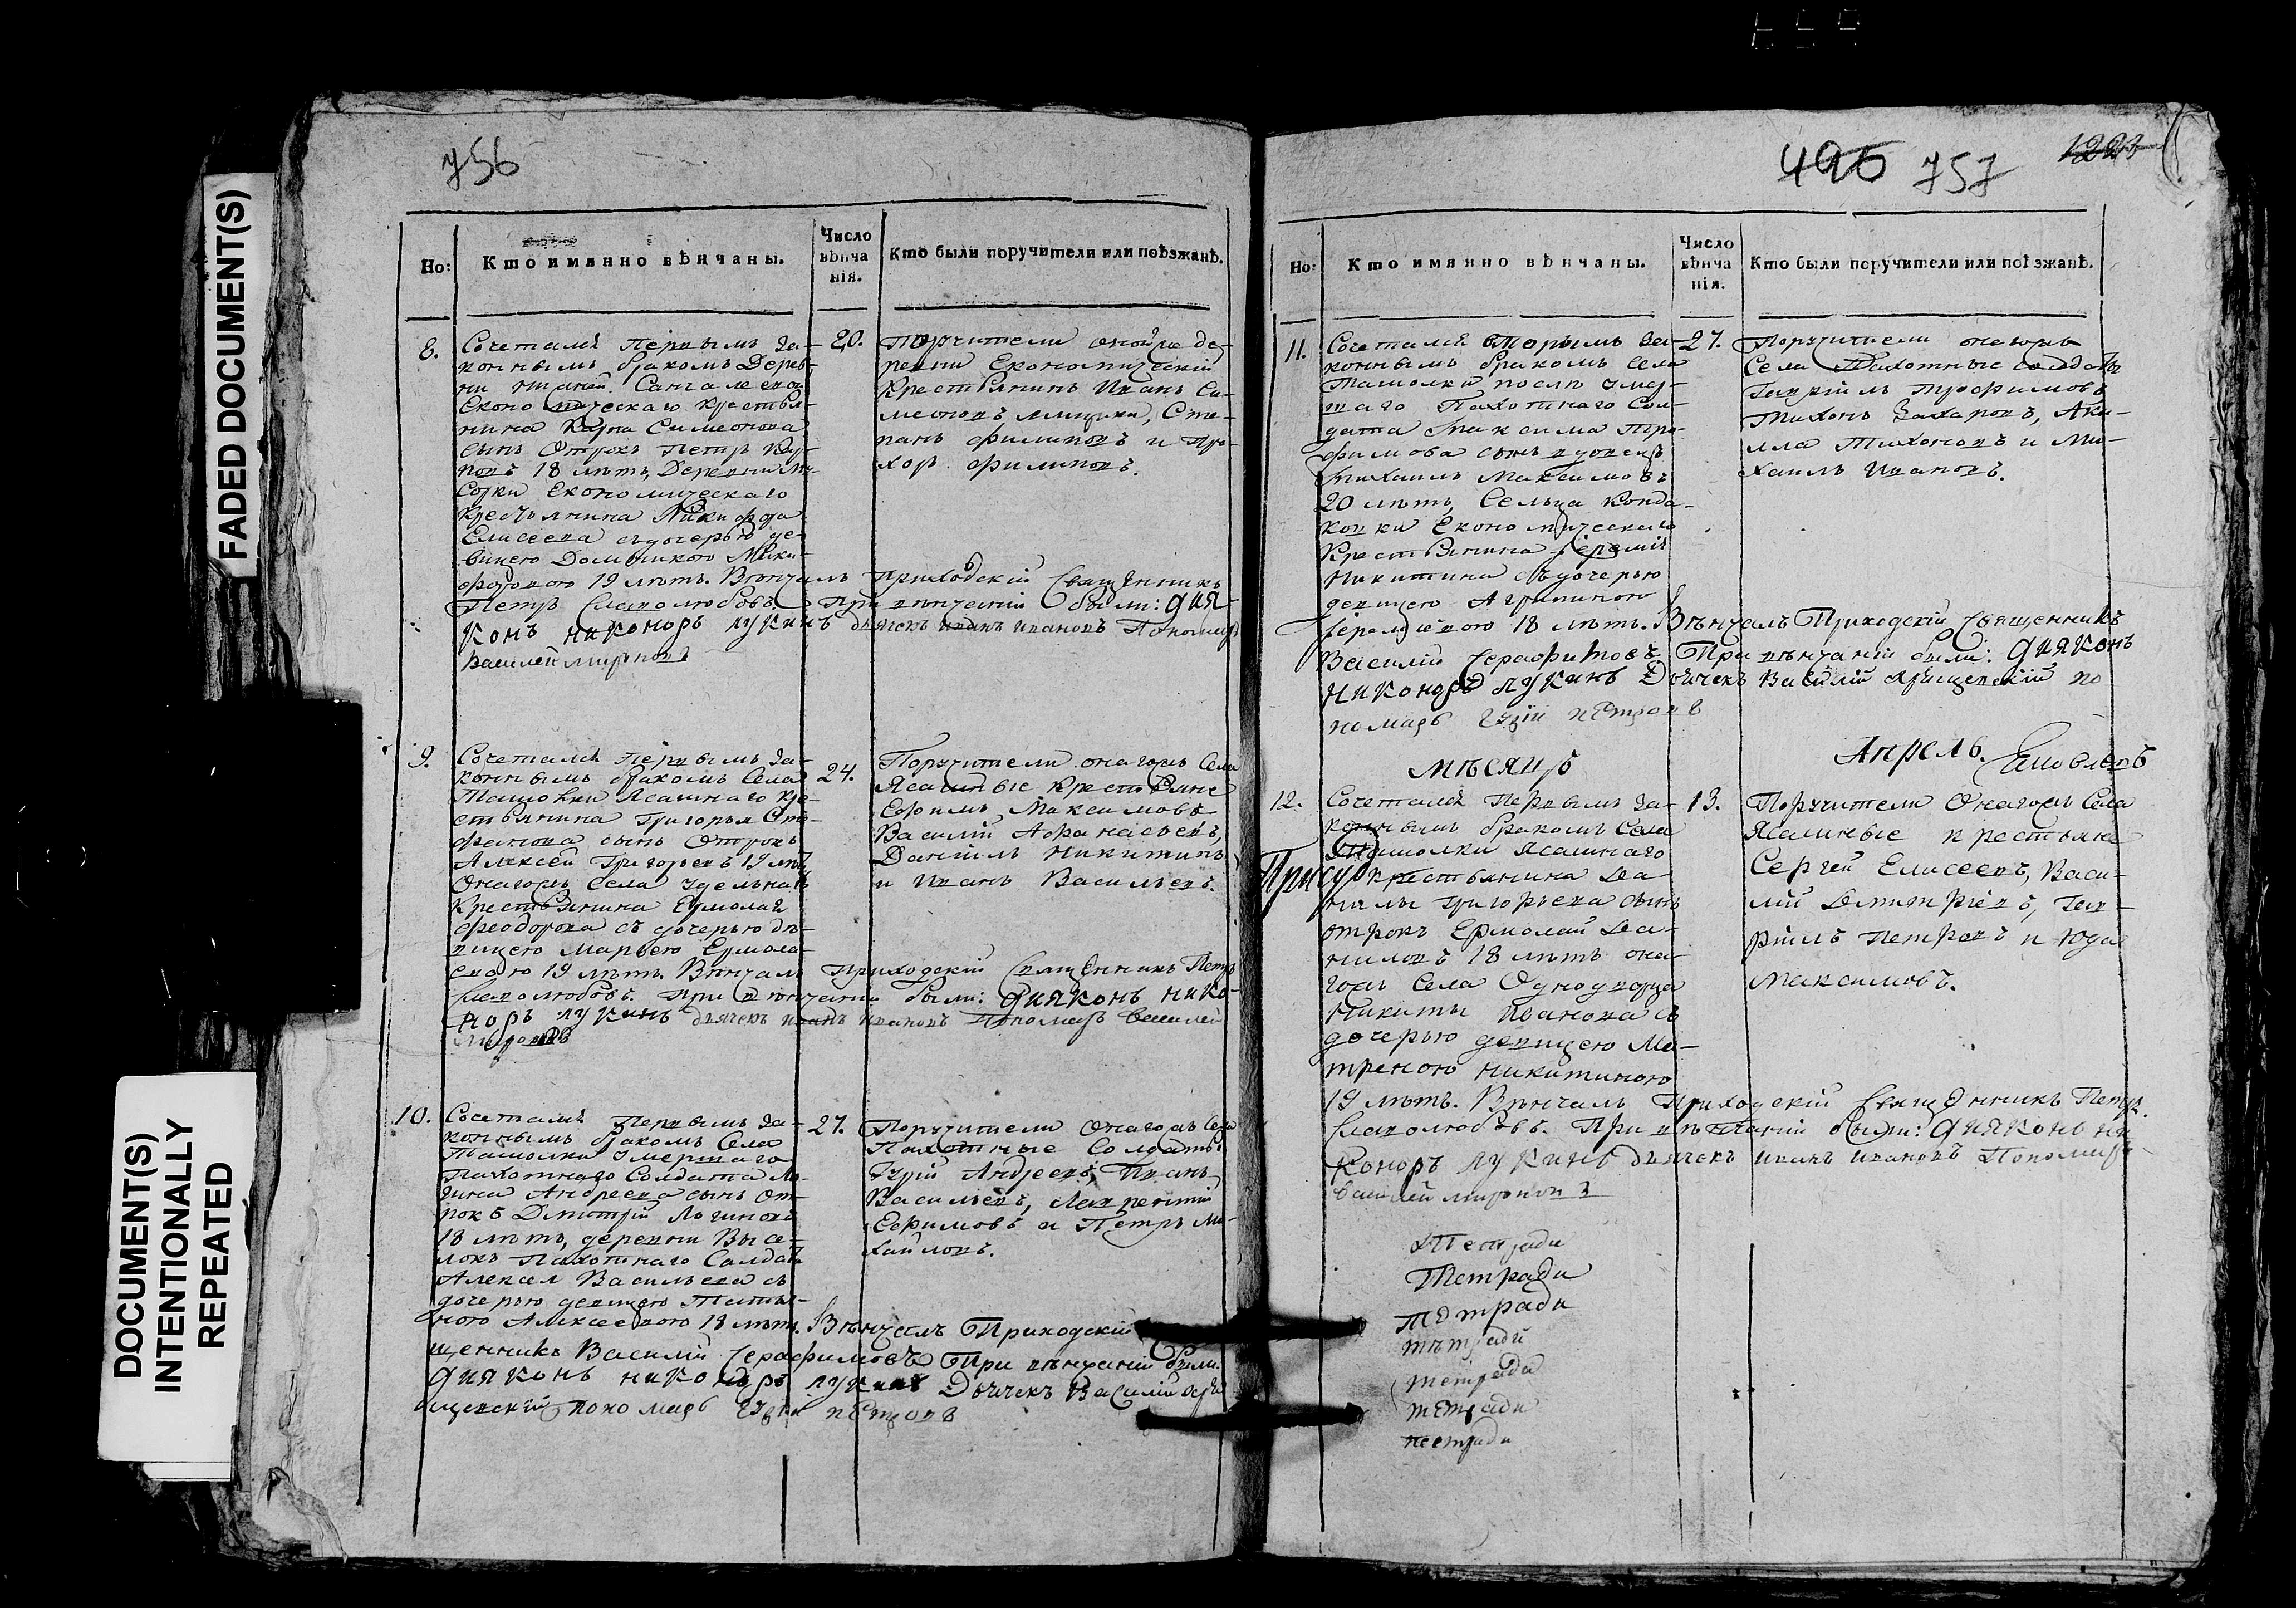 FADED DOCUMENT(S)
DOCUMENT(S)
INTENTIONALLY
REPEATED
756
Но:
Кто имянно вѣнчаны.
Число
вѣнча
нія.
Кто были поручители или поѣзжанѣ.
8.
Сочетался первымъ за-
коннымъ бракомъ Дерев-
ни
Економическаго крестья-
нина Карпа Симеонова
сынъ Отрокъ Петръ Кар-
повъ 18 лѣтъ, Деревни
Економическаго
крестьянина Никифора
Елисеева съ дочерью де-
вицею Домникою Ники-
форовою 19 лѣтъ. Вѣнчалъ Приходскій Священникъ
Петръ Славолюбовъ. При вѣнчаніи были: Дия-
конъ никоноръ лукинъ дьячекъ иванъ ивановъ Пономарь
василей мироновъ
20.
Поручители оной же де-
ревни Економическій
Крестьянинъ Иванъ Си-
меоновъ ямщики, Сте-
панъ Филиповъ и Про-
хоръ Филиповъ.
9.
Сочетался первымъ за-
коннымъ бракомъ Села
Ташолки Ясашнаго кре-
стьянина Григорья Сте-
фанова сынъ Отрокъ
Алексей Григорьевъ 19 лѣтъ
Онагожъ Села удельнаго
Крестьянина Ермолая
Феодорова съ дочерью дѣ-
вицею Марьею Ермола-
евою 19 лѣтъ. Вѣнчалъ Приходскій Священникъ Петръ
Славолюбовъ. При вѣнчаніи были: Дияконъ нико-
норъ лукинъ дьячекъ иванъ ивановъ Пономарь василей
Мироновъ
24.
Поручители онагожъ Села
Ясашные Крестьяне
Ефимъ Максимовъ
Василій Афанасьевъ,
Даніилъ Никитинъ
и Иванъ Васильевъ.
10.
Сочетался первымъ за-
коннымъ бракомъ Села
Ташолки умершаго
Пахотнаго Солдата Ло-
гина Андреева сынъ От-
рокъ Дмитрій Логиновъ
18 лѣтъ, деревни Высе-
локъ Пахотнаго Солдата
Алексея Васильева съ
дочерью девицею Татья-
ною Алексеевою 18 лѣтъ. Вѣнчалъ Приходскій
щенникъ Василій Серафимовъ При вѣнчаніи были:
Дияконъ никоноръ лукинъ Дьячекъ Василій Хри
щевскій пономарь гурій петровъ
27.
Поручители Онагожъ Села
Пахотные Солдаты
Гурій Андреевъ, Иванъ
Васильевъ, Лаврентій
Ефимовъ и Петръ Ми-
хайловъ.
496 757 1223
Но:
Кто имянно вѣнчаны.
Число
вѣнча
нія.
Кто были поручители или поѣзжанѣ.
11.
Сочетался вторымъ за-
коннымъ бракомъ Села
Ташолки послѣ умер-
шаго Пахотнаго Сол-
дата Максима Тро-
фимова сынъ вдовецъ
Михаилъ Максимовъ
20 лѣтъ, Сельца Конда-
ковки Економическаго
Крестьянина Іеремія
Никитина съ дочерью
девицею Агрипиною
Іеремѣевою 18 лѣтъ. Вѣнчалъ Приходскій Священникъ
Василій Серафимовъ При вѣнчаніи были: Дияконъ
никоноръ лукинъ Дьячекъ Василій Хрищевскій по
номарь гурій петровъ
27.
Поручители онагожъ
Села Пахотные солдаты
Гавріилъ Трофимовъ
Тихонъ Захаровъ, Аки-
лла Тихоновъ и Ми-
хаилъ Ивановъ.
мѣсяцъ Апрель.
12.
Сочетался Первымъ за-
коннымъ бракомъ Села
Ташолки Ясашнаго
крестьянина Да-
нилы Григорьева сынъ
отрокъ Ермолай Да-
ниловъ 18 лѣтъ она-
гожъ Села Однодворца
Никиты Иванова съ
дочерью девицею Ма-
треною Никитиною
19 лѣтъ. Вѣнчалъ Приходскій Священникъ Петръ
Славолюбовъ. При вѣнчаніи были: Дияконъ ни
коноръ лукинъ дьячекъ иванъ ивановъ Пономарь
василей мироновъ
13.
Поручители Онагожъ Села
Ясашные крестьяне
Сергей Елисеевъ, Васи-
лій Дмитріевъ, Гав-
ріилъ Петровъ и Юда
Максимовъ.
Тетради
Тетради
тетради
тетради
тетради
тетради
тетради